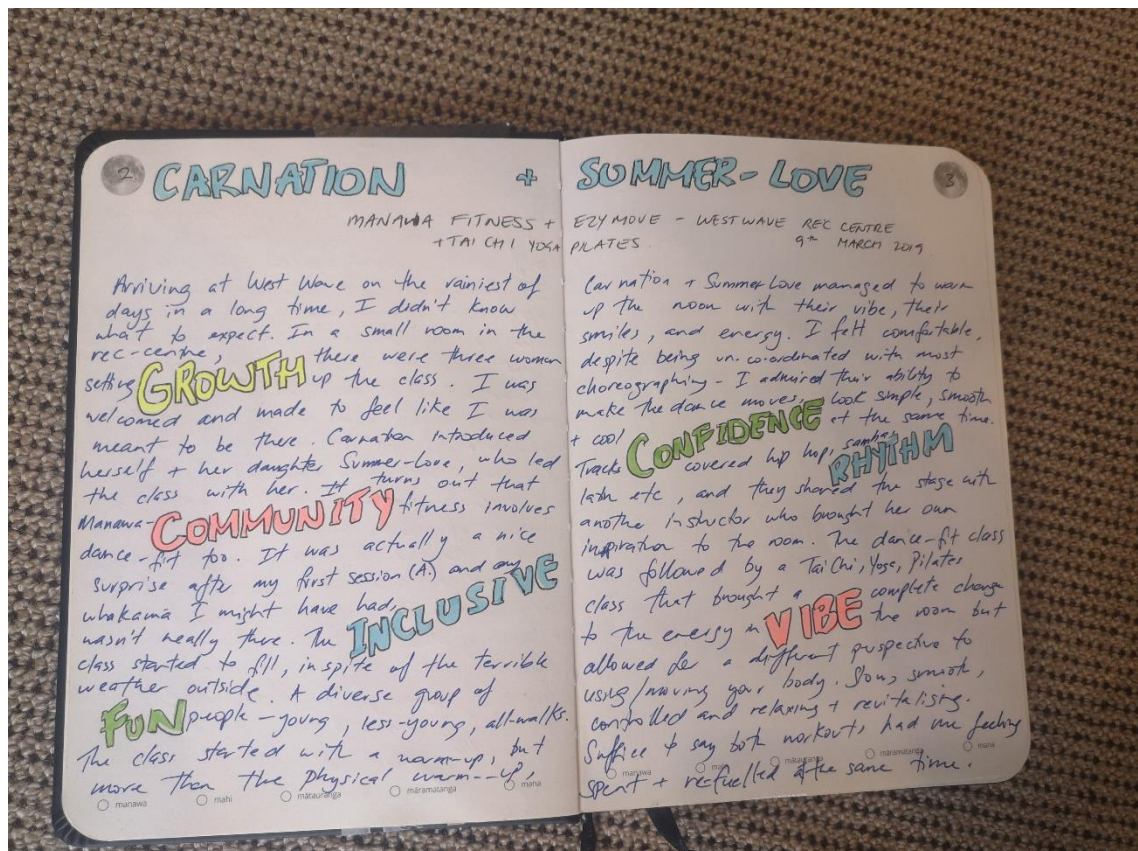 2 CARNATION + SUMMER-LOVE 3
MANAWA FITNESS + EZYMOVE - WESTWAVE REC CENTRE
+TAI CHI YOGA PILATES. 9TH MARCH 2019
Arriving at West Wave on the rainiest of
days in a long time, I didn't know
what to expect. In a small room in the
rec-centre, there were three woman
setting GROWTH up the class. I was
welcomed and made to feel like I was
meant to be there. Carnation introduced
herself + her daughter Summer-Love, who led
the class with her. It turns out that
Manawa- COMMUNITY fitness involves
dance-fit too. It was actually a nice
surprise after my first session (A.) and any
whakamā I might have had,
wasn't really there. The INCLUSIVE
class started to fill, in spite of the terrible
weather outside. A diverse group of
FUN people - young, less-young, all-walks.
The class started with a warm-up, but
more than the physical warm--up,
manawa mahi mātauranga māramatanga mana
Carnation + Summer Love managed to warm
up the room with their vibe, their
smiles, and energy. I felt comfortable,
despite being un.co.ordinated with most
choreographing - I admired their ability to
make the dance moves, look simple, smooth
+ cool CONFIDENCE at the same time.
Tracks covered hip hop, samba, RHYTHM
latin etc, and they shared the stage with
another instructor who brought her own
inspiration to the room. The dance-fit class
was followed by a Tai Chi, Yoga, Pilates
class that brought a VIBE complete change
to the energy in the room but
allowed for a different perspective to
using/moving your body. Slow, smooth,
controlled and relaxing + revitalising.
Suffice to say both workouts had me feeling
spent + re-fuelled at the same time.
manawa mahi mātauranga māramatanga mana